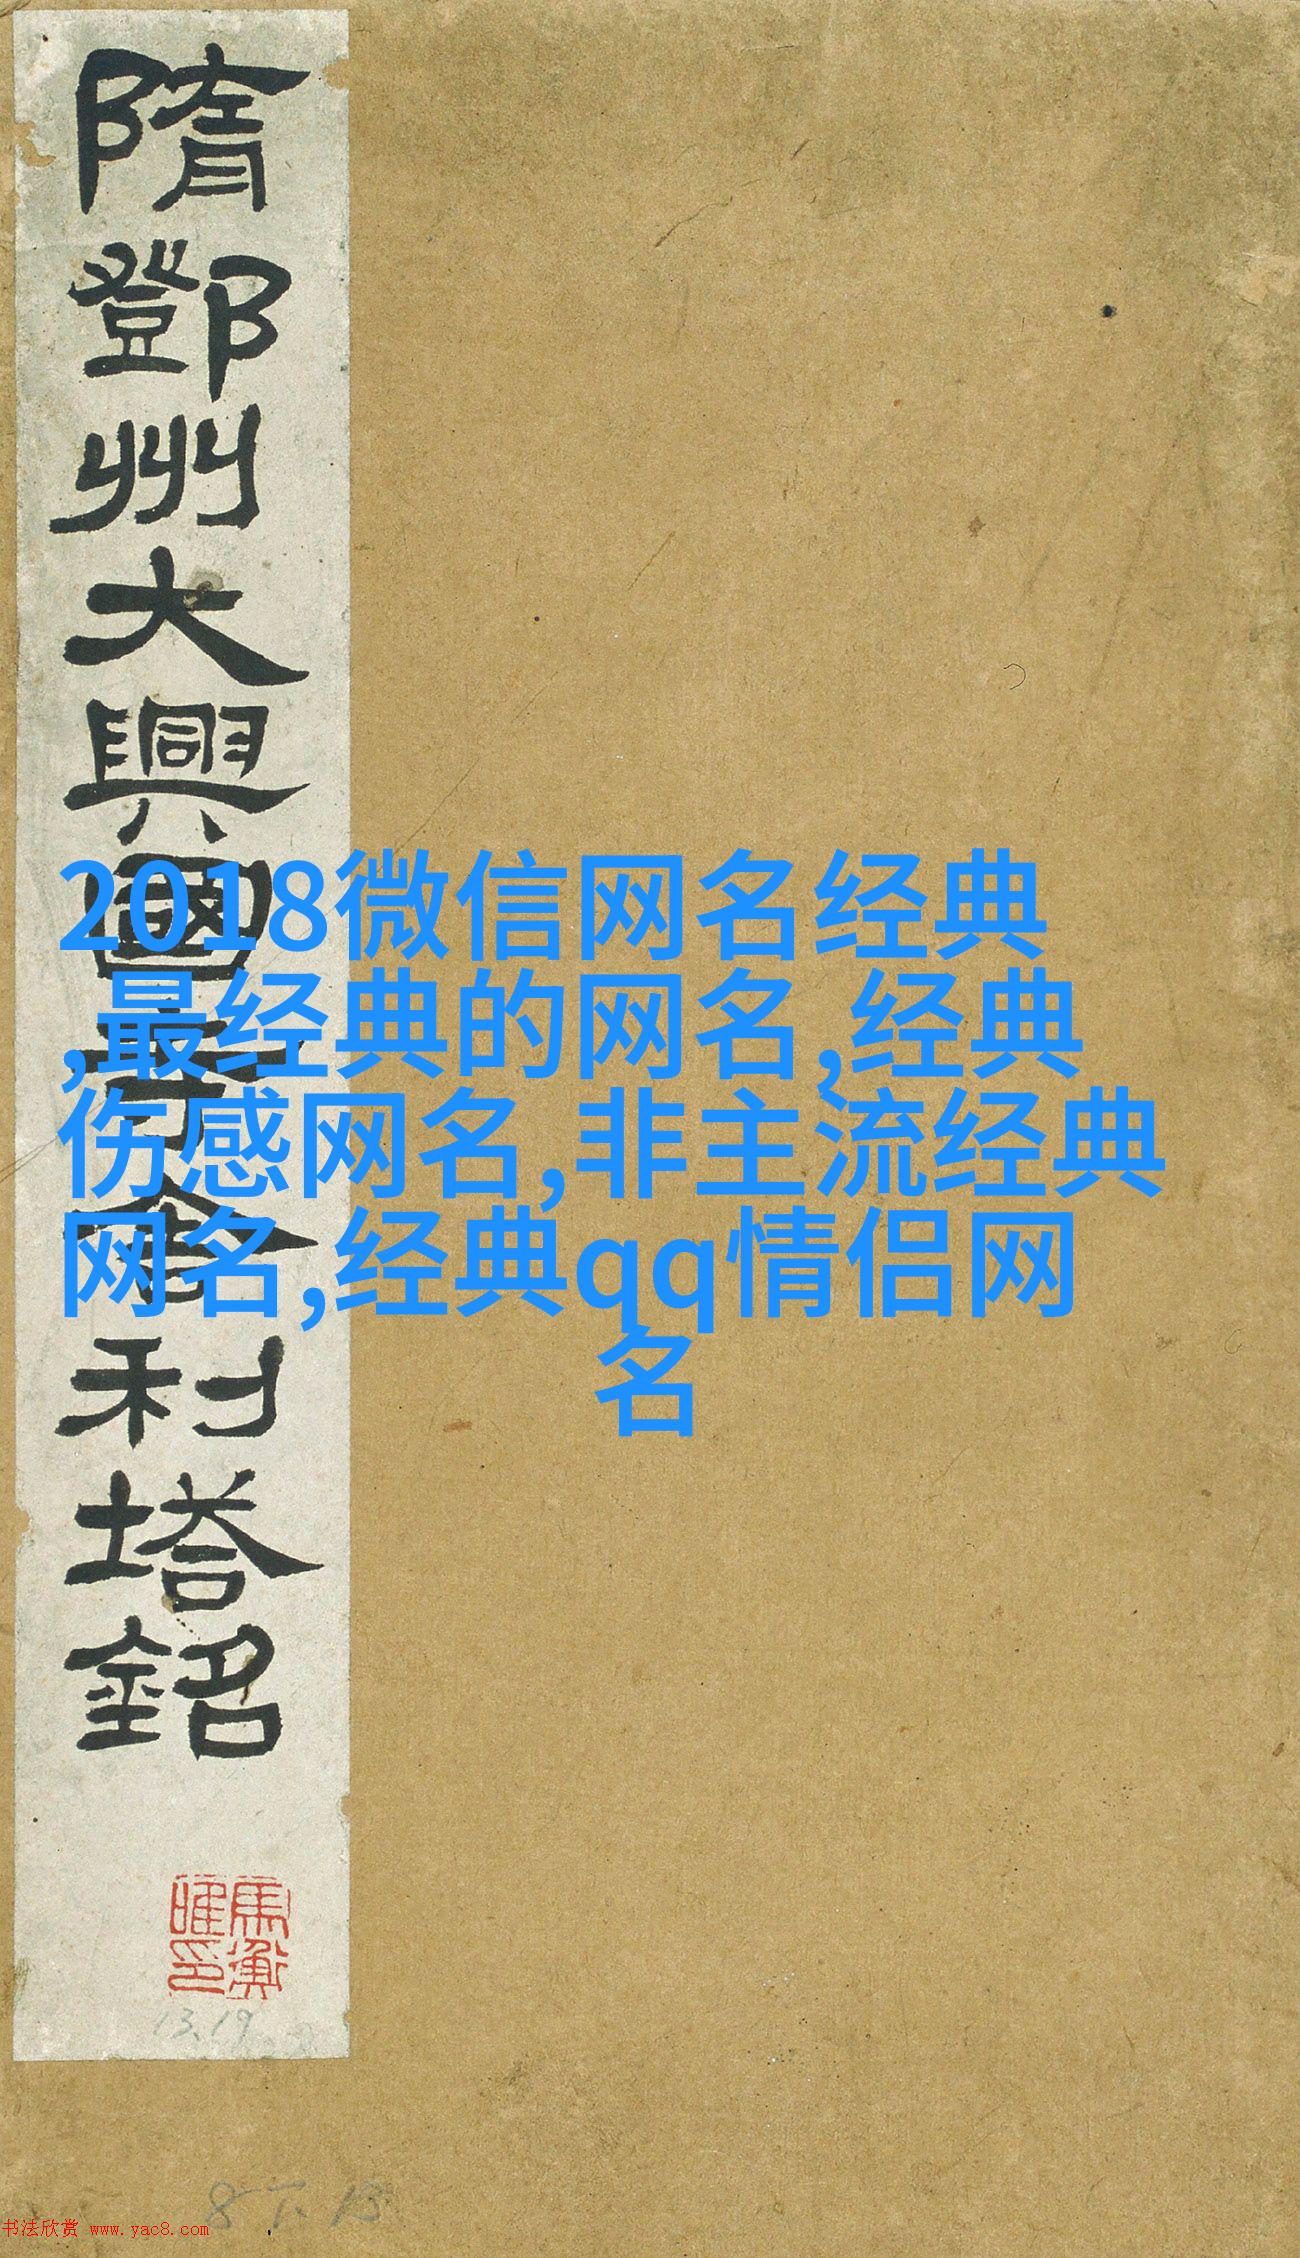 隋鄧州大興國寺舍利塔銘
2018微信网名经典
,最经典的网名,经典
伤感网名,非主流经典
网名,经典qq情侣网
名
馬衡
13.19
8下13
书法欣赏 www.yac8.com